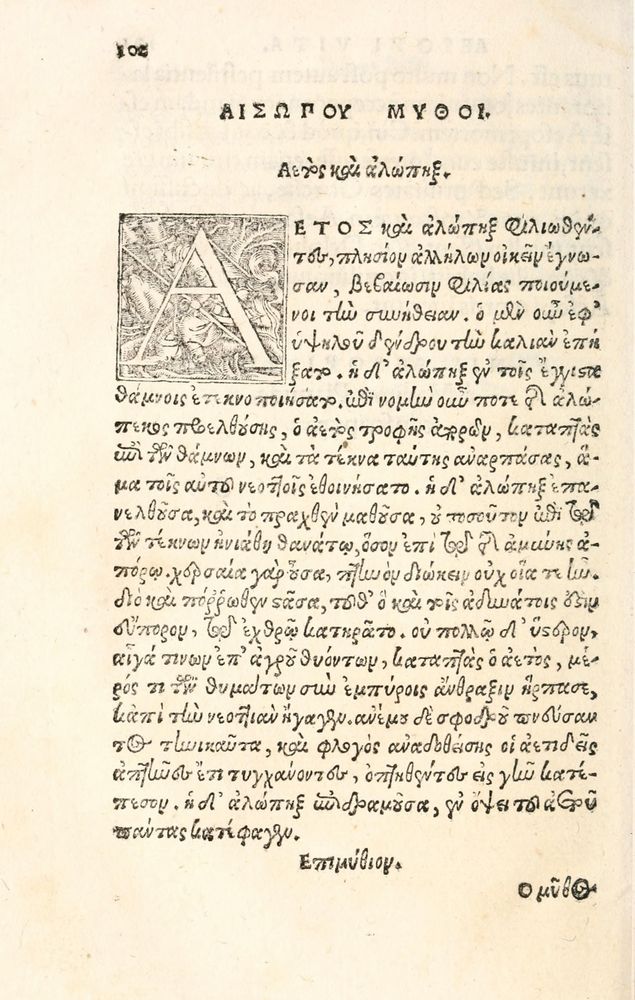 102
ΑΙΣΩΠΟΥ ΜΥΘΟΙ.
Αετὸς καὶ ἀλώπηξ.
ΑΕΤΟΣ καὶ ἀλώπηξ φιλιωθέν-
τες, πλησίον ἀλλήλων οἰκεῖν ἔγνω-
σαν, βεβαίωσιν φιλίας ποιούμε-
νοι τὴν συνήθειαν. ὁ μὲν οὖν ἐφ'
ὑψηλοῦ δένδρου τὴν καλιὰν ἐπή
ξατο. ἡ δ' ἀλώπηξ ἐν τοῖς ἔγγιστα
θάμνοις ἐτεκνοποιήσατο. ἐπὶ νομὴν οὖν ποτε τῆς ἀλώ-
πεκος προελθούσης, ὁ ἀετὸς τροφῆς ἀπορῶν, καταπτὰς
ἐπὶ τῶν θάμνων, καὶ τὰ τέκνα ταύτης ἀναρπάσας, ἅ-
μα τοῖς αὑτοῦ νεοττοῖς ἐθοινήσατο. ἡ δ' ἀλώπηξ ἐπα-
νελθοῦσα, καὶ τὸ πραχθὲν μαθοῦσα, οὐ τοσοῦτον ἐπὶ τῷ
τῶν τέκνων ἠνιάθη θανάτῳ, ὅσον ἐπὶ τῷ τῆς ἀμύνης ἀ-
πόρῳ. χερσαία γὰρ οὖσα, πτηνὸν διώκειν οὐχ οἵα τε ἦν.
διὸ καὶ πόρρωθεν στᾶσα, τοῦθ' ὃ καὶ τοῖς ἀδυνάτοις ἐστὶν
εὔπορον, τῷ ἐχθρῷ κατηρᾶτο. οὐ πολλῷ δ' ὕστερον,
αἶγά τινων ἐπ' ἀγροῦ θυόντων, καταπτὰς ὁ ἀετὸς, μέ-
ρός τι τῶν θυμάτων σὺν ἐμπύροις ἄνθραξιν ἥρπασε,
κἀπὶ τὴν νεοττιὰν ἤγαγεν. ἀνέμου δὲ σφοδροῦ πνεύσαν
τος τηνικαῦτα, καὶ φλογὸς ἀναδοθείσης οἱ ἀετιδεῖς
ἀπτῆνες ἔτι τυγχάνοντες, ὀπτηθέντες εἰς γῆν κατέ-
πεσον. ἡ δ' ἀλώπηξ ἐπιδραμοῦσα, ἐν ὄψει τοῦ ἀετοῦ
πάντας κατέφαγεν.
Επιμύθιον.
Ο μῦθος